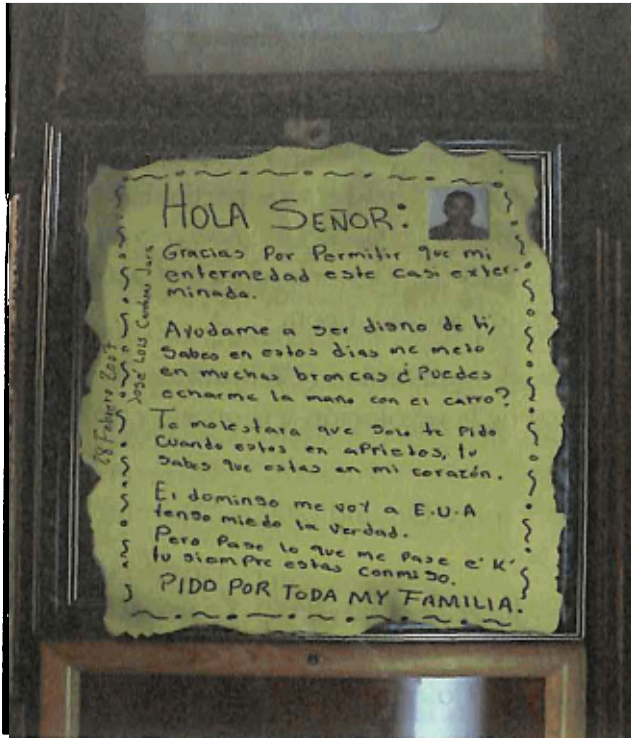 HOLA SEÑOR:
Gracias Por Permitir que mi
enfermedad este casi exter-
minada.
Ayudame a ser digno de ti,
Sabes en estos dias me meto
en muchas broncas ¿Puedes
echarme la mano con el carro?
Te molestara que solo te Pido
Cuando estos en aPrietos, tu
Sabes que estas en mi corazón.
El domingo me voy a E.U.A
tengo miedo la verdad.
Pero Pase lo que me Pase e' K'
tu siempre estas conmigo.
PIDO POR TODA MY FAMILIA.
28 Febrero 2007
José Luis Jara